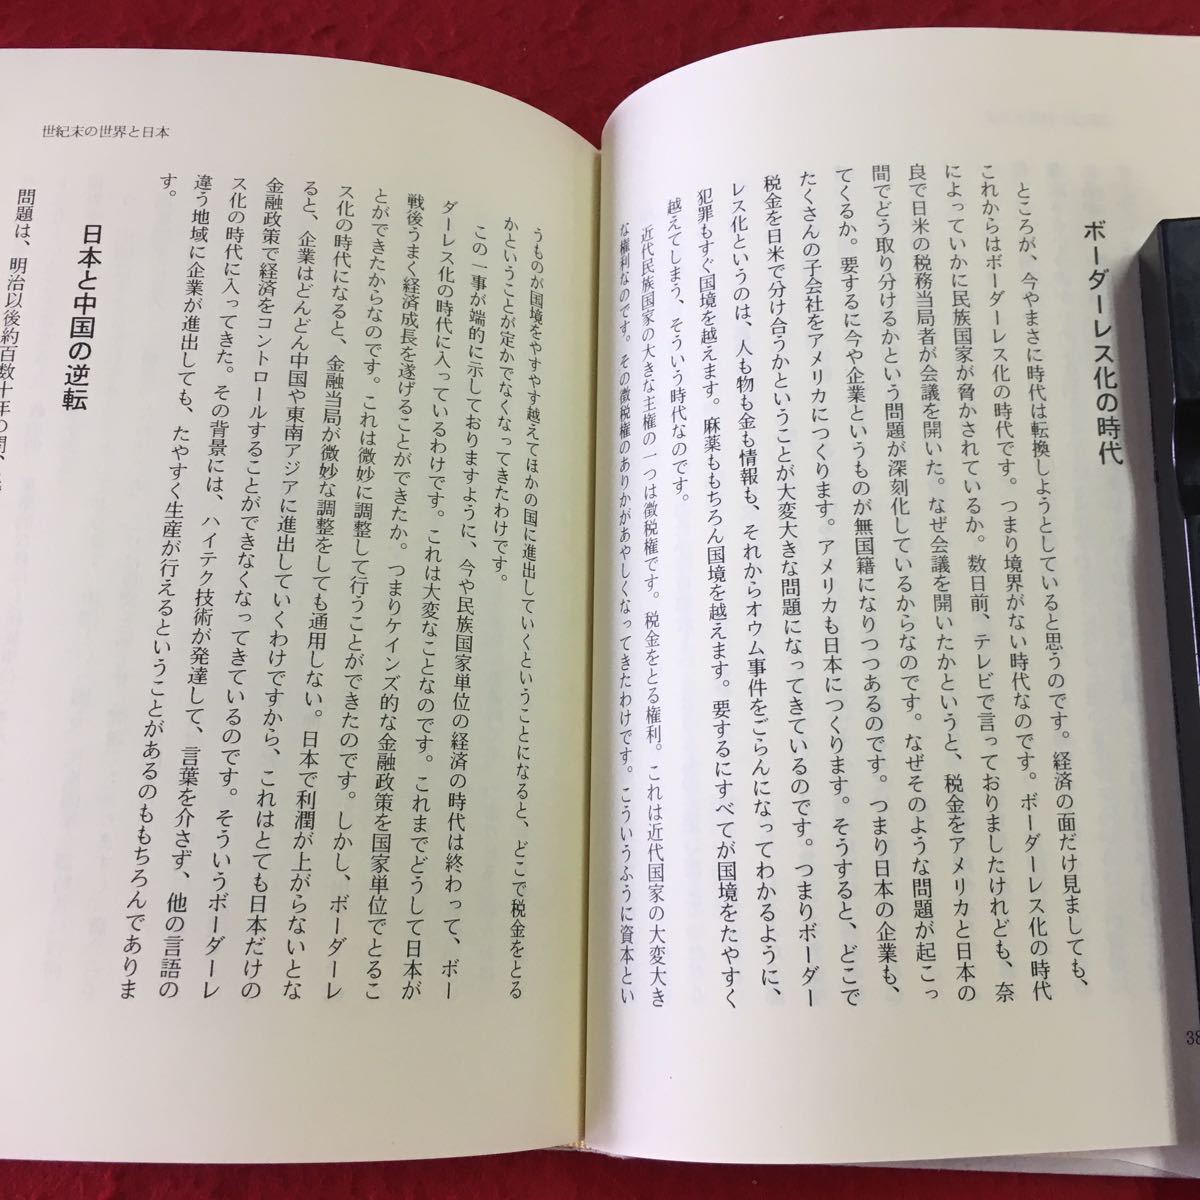 ボーダーレス化の時代
ところが、今やまさに時代は転換しようとしていると思うのです。経済の面だけ見ましても、
これからはボーダーレス化の時代です。つまり境界がない時代なのです。ボーダーレス化の時代
によっていかに民族国家が脅かされているか。数日前、テレビで言っておりましたけれども、奈
良で日米の税務当局者が会議を開いた。なぜ会議を開いたかというと、税金をアメリカと日本の
間でどう取り分けるかという問題が深刻化しているからなのです。なぜそのような問題が起こっ
てくるか。要するに今や企業というものが無国籍になりつつあるのです。つまり日本の企業も、
たくさんの子会社をアメリカにつくります。アメリカも日本につくります。そうすると、どこで
税金を日米で分け合うかということが大変大きな問題になってきているのです。つまりボーダー
レス化というのは、人も物も金も情報も、それからオウム事件をごらんになってわかるように、
犯罪もすぐ国境を越えます。麻薬ももちろん国境を越えます。要するにすべてが国境をたやすく
越えてしまう、そういう時代なのです。
近代民族国家の大きな主権の一つは徴税権です。税金をとる権利。これは近代国家の大変大き
な権利なのです。その徴税権のありかがあやしくなってきたわけです。こういうふうに資本とい
38
世紀末の世界と日本
うものが国境をやすやす越えてほかの国に進出していくということになると、どこで税金をとる
かということが定かでなくなってきたわけです。
この一事が端的に示しておりますように、今や民族国家単位の経済の時代は終わって、ボー
ダーレス化の時代に入っているわけです。これは大変なことなのです。これまでどうして日本が
戦後うまく経済成長を遂げることができたか。つまりケインズ的な金融政策を国家単位でとるこ
とができたからなのです。これは微妙に調整して行うことができたのです。しかし、ボーダーレ
ス化の時代になると、金融当局が微妙な調整をしても通用しない。日本で利潤が上がらないとな
ると、企業はどんどん中国や東南アジアに進出していくわけですから、これはとても日本だけの
金融政策で経済をコントロールすることができなくなってきているのです。そういうボーダーレ
ス化の時代に入ってきた。その背景には、ハイテク技術が発達して、言葉を介さず、他の言語の
違う地域に企業が進出しても、たやすく生産が行えるということがあるのももちろんでありま
す。
日本と中国の逆転
問題は、明治以後約百数十年の間、